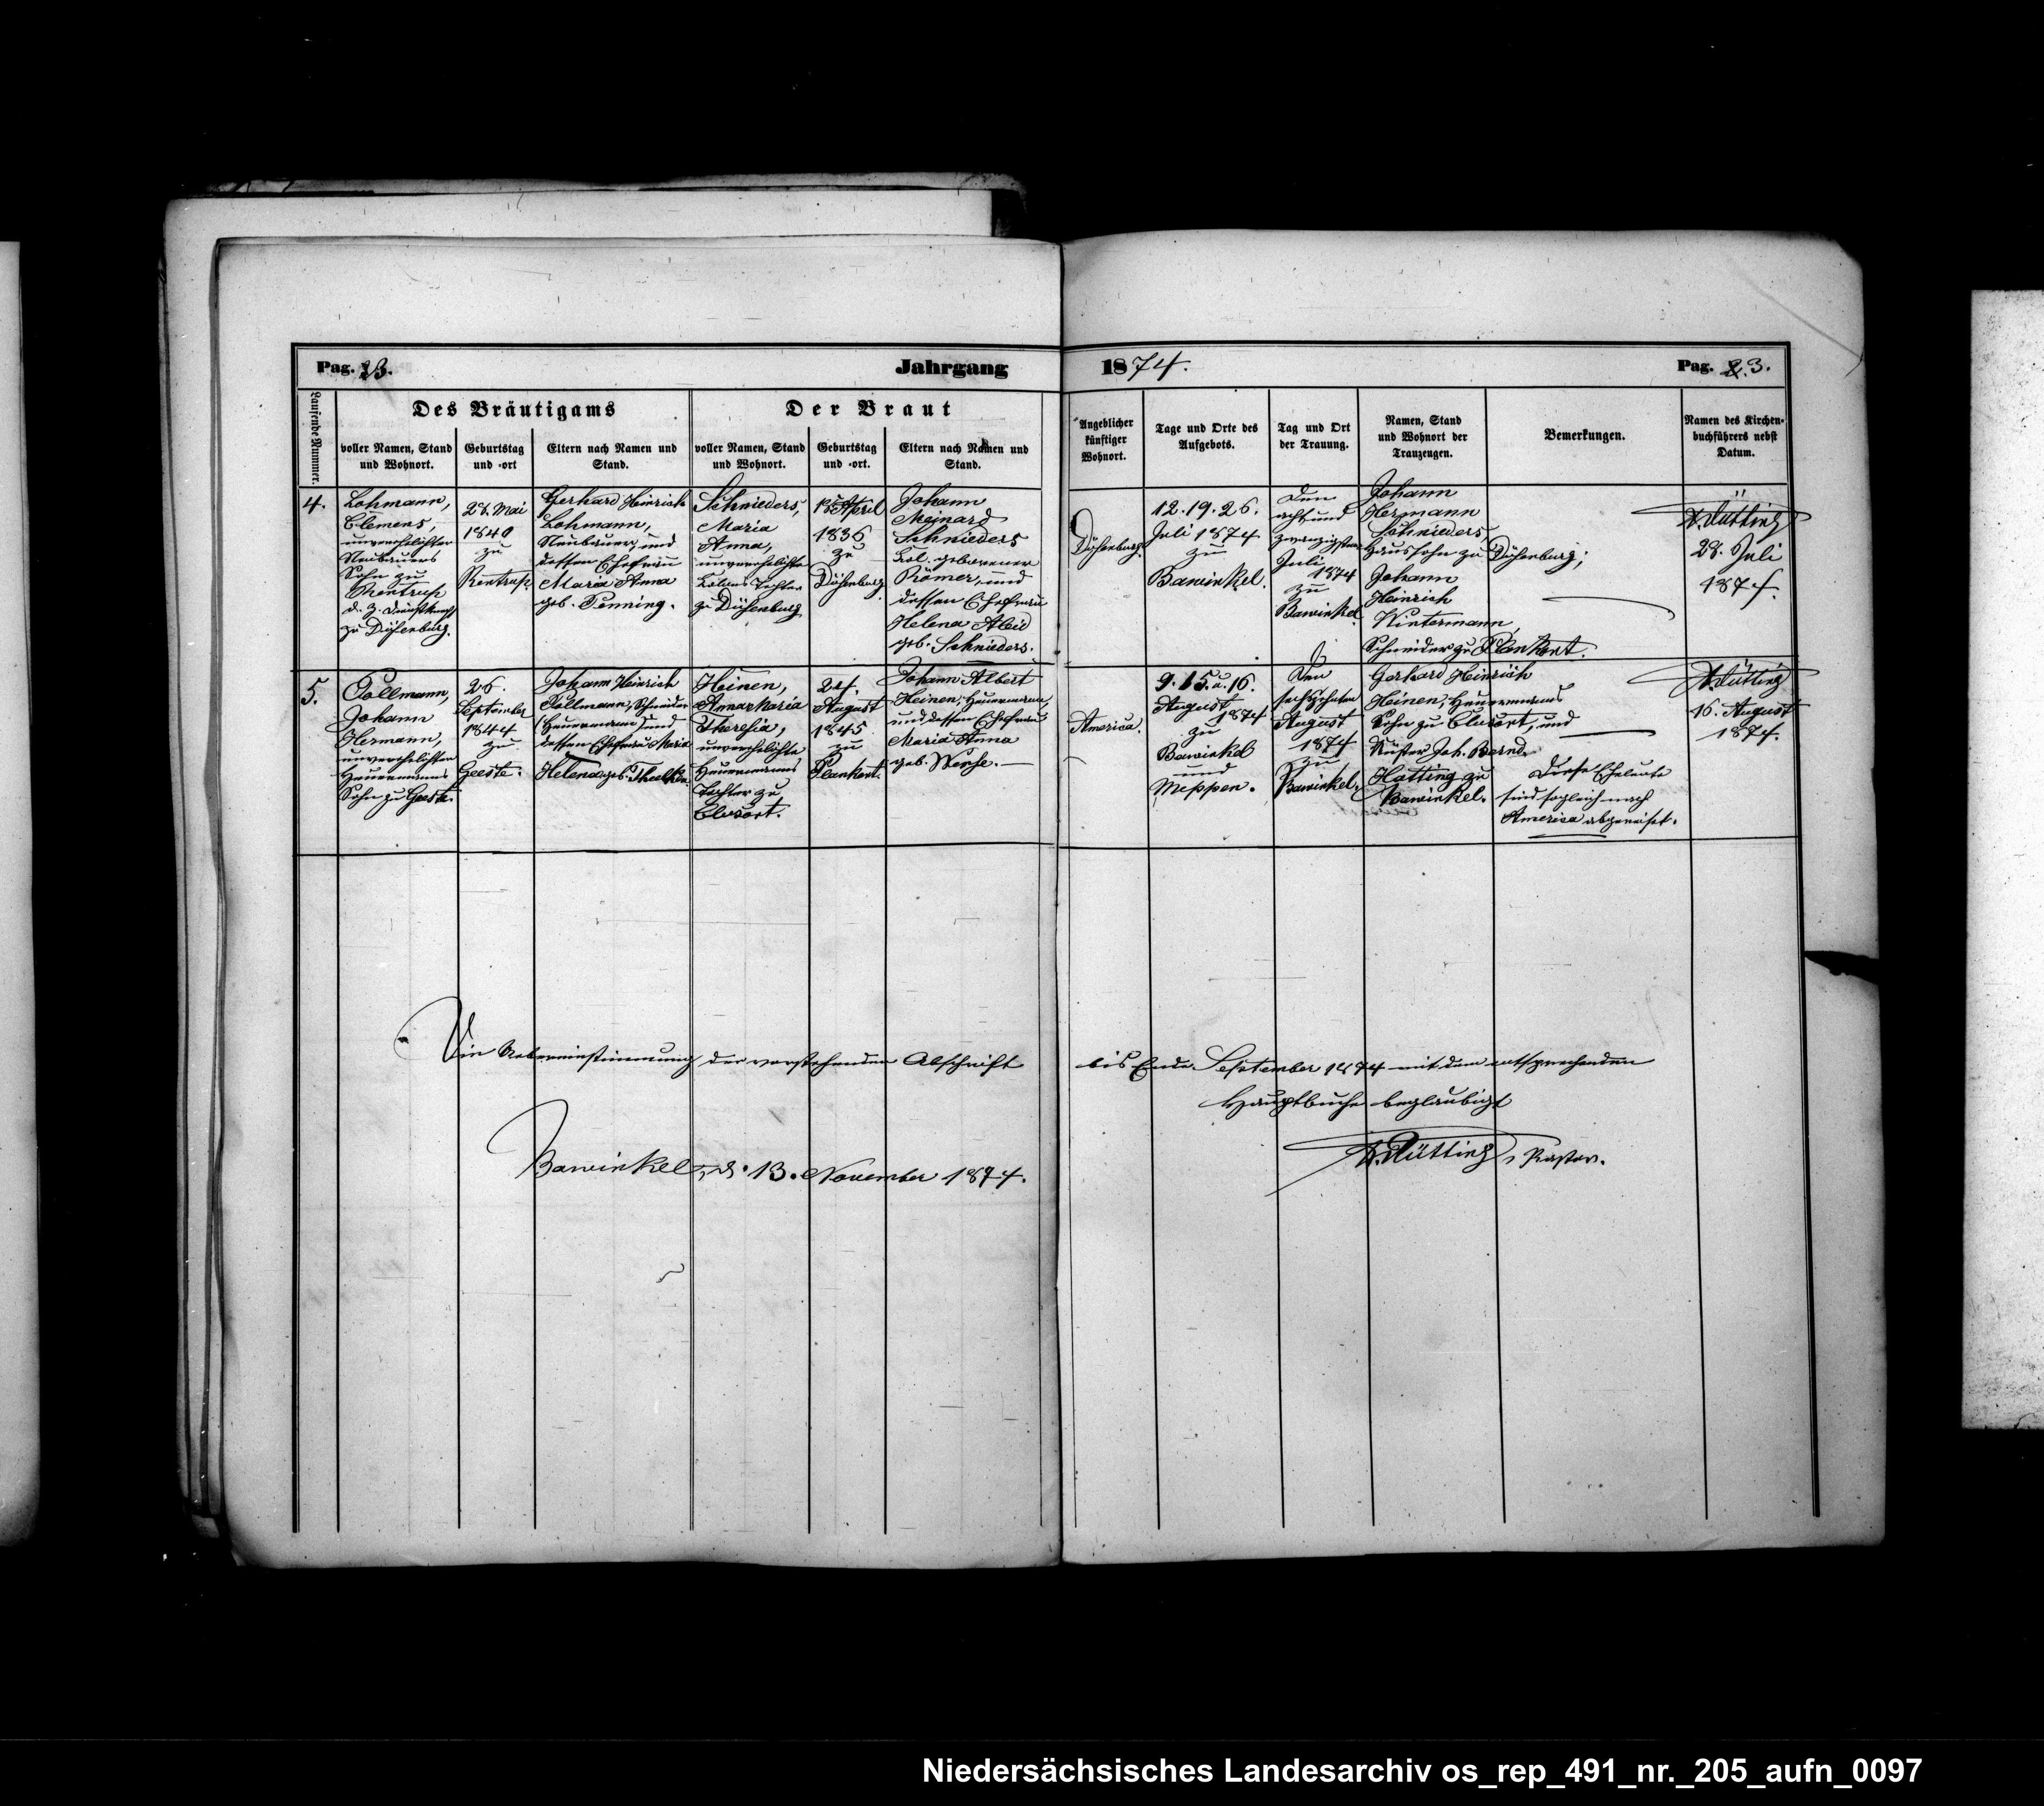 Pag. 23.
Jahrgang
1874.
Pag. 2.3.
Laufende Nummer.
Des Bräutigams
voller Namen, Stand
und Wohnort.
Geburtstag
und -ort
Eltern nach Namen und
Stand.
Der Braut
voller Namen, Stand
und Wohnort.
Geburtstag
und -ort.
Eltern nach Namen und
Stand.
Angeblicher
künftiger
Wohnort.
Tage und Orte des
Aufgebots.
Tag und Ort
der Trauung.
Namen, Stand
und Wohnort der
Trauzeugen.
Bemerkungen.
Namen des Kirchen-
buchführers nebst
Datum.
4.
Lohmann,
Clemens,
unverehelichter
Neubauers
Sohn zu
Rentrup
d. Z. Dienstknecht
zu Düsenburg.
28. Mai
1840
zu
Rentrup.
Gerhard Heinrich
Lohmann,
Neubauer, und
dessen Ehefrau
Maria Anna
geb. Penning.
Schnieders,
Maria
Anna,
unverehelichte
Colons Tochter
zu Düsenburg
15 April
1836
zu
Düsenburg.
Johann
Meinard
Schnieders
Col. geborener
Römer, und
dessen Ehefrau
Helena Aleid
geb. Schnieders.
Düsenburg.
12. 19. 26.
Juli 1874
zu
Bawinkel.
Den
acht und
zwanzigsten
Juli
1874
zu
Bawinkel.
Johann
Hermann
Schnieders,
Haussohn zu Düsenburg;
Johann
Heinrich
Wintermann,
Schneider zu Plankort.
Dütting
28. Juli
1874.
5.
Pollmann,
Johann
Hermann,
unverehelichter
Heuermanns
Sohn zu Geeste.
26.
September
1844
zu
Geeste.
Johann Heinrich
Pollmann, Schneider
(Heuermann) und
dessen Ehefrau Maria
Helena geb.
Heinen,
Anna Maria
Theresia,
unverehelichte
Heuermanns
Tochter zu
Clusort.
24.
August
1845
zu
Plankort.
Johann Albert
Heinen, Heuermann,
und dessen Ehefrau
Maria Anna
geb. Wense.
America.
9. 15. u. 16.
August
1874
zu
Bawinkel
und
Meppen.
Den
sechszehnten
August
1874
zu
Bawinkel.
Gerhard Heinrich
Heinen, Heuermanns
Sohn zu Clusort, und
Küster Joh. Bernd.
Hatting zu
Bawinkel.
Diese Eheleute
sind sogleich nach
America abgereiset.
Dütting
16. August
1874.
Die Uebereinstimmung der vorstehenden Abschrift bis Ende September 1874 mit dem entsprechenden
Hauptbuche beglaubigt
Bawinkel, d. 13. November 1874.
Dütting, Pastor.
Niedersächsisches Landesarchiv os_rep_491_nr._205_aufn_0097